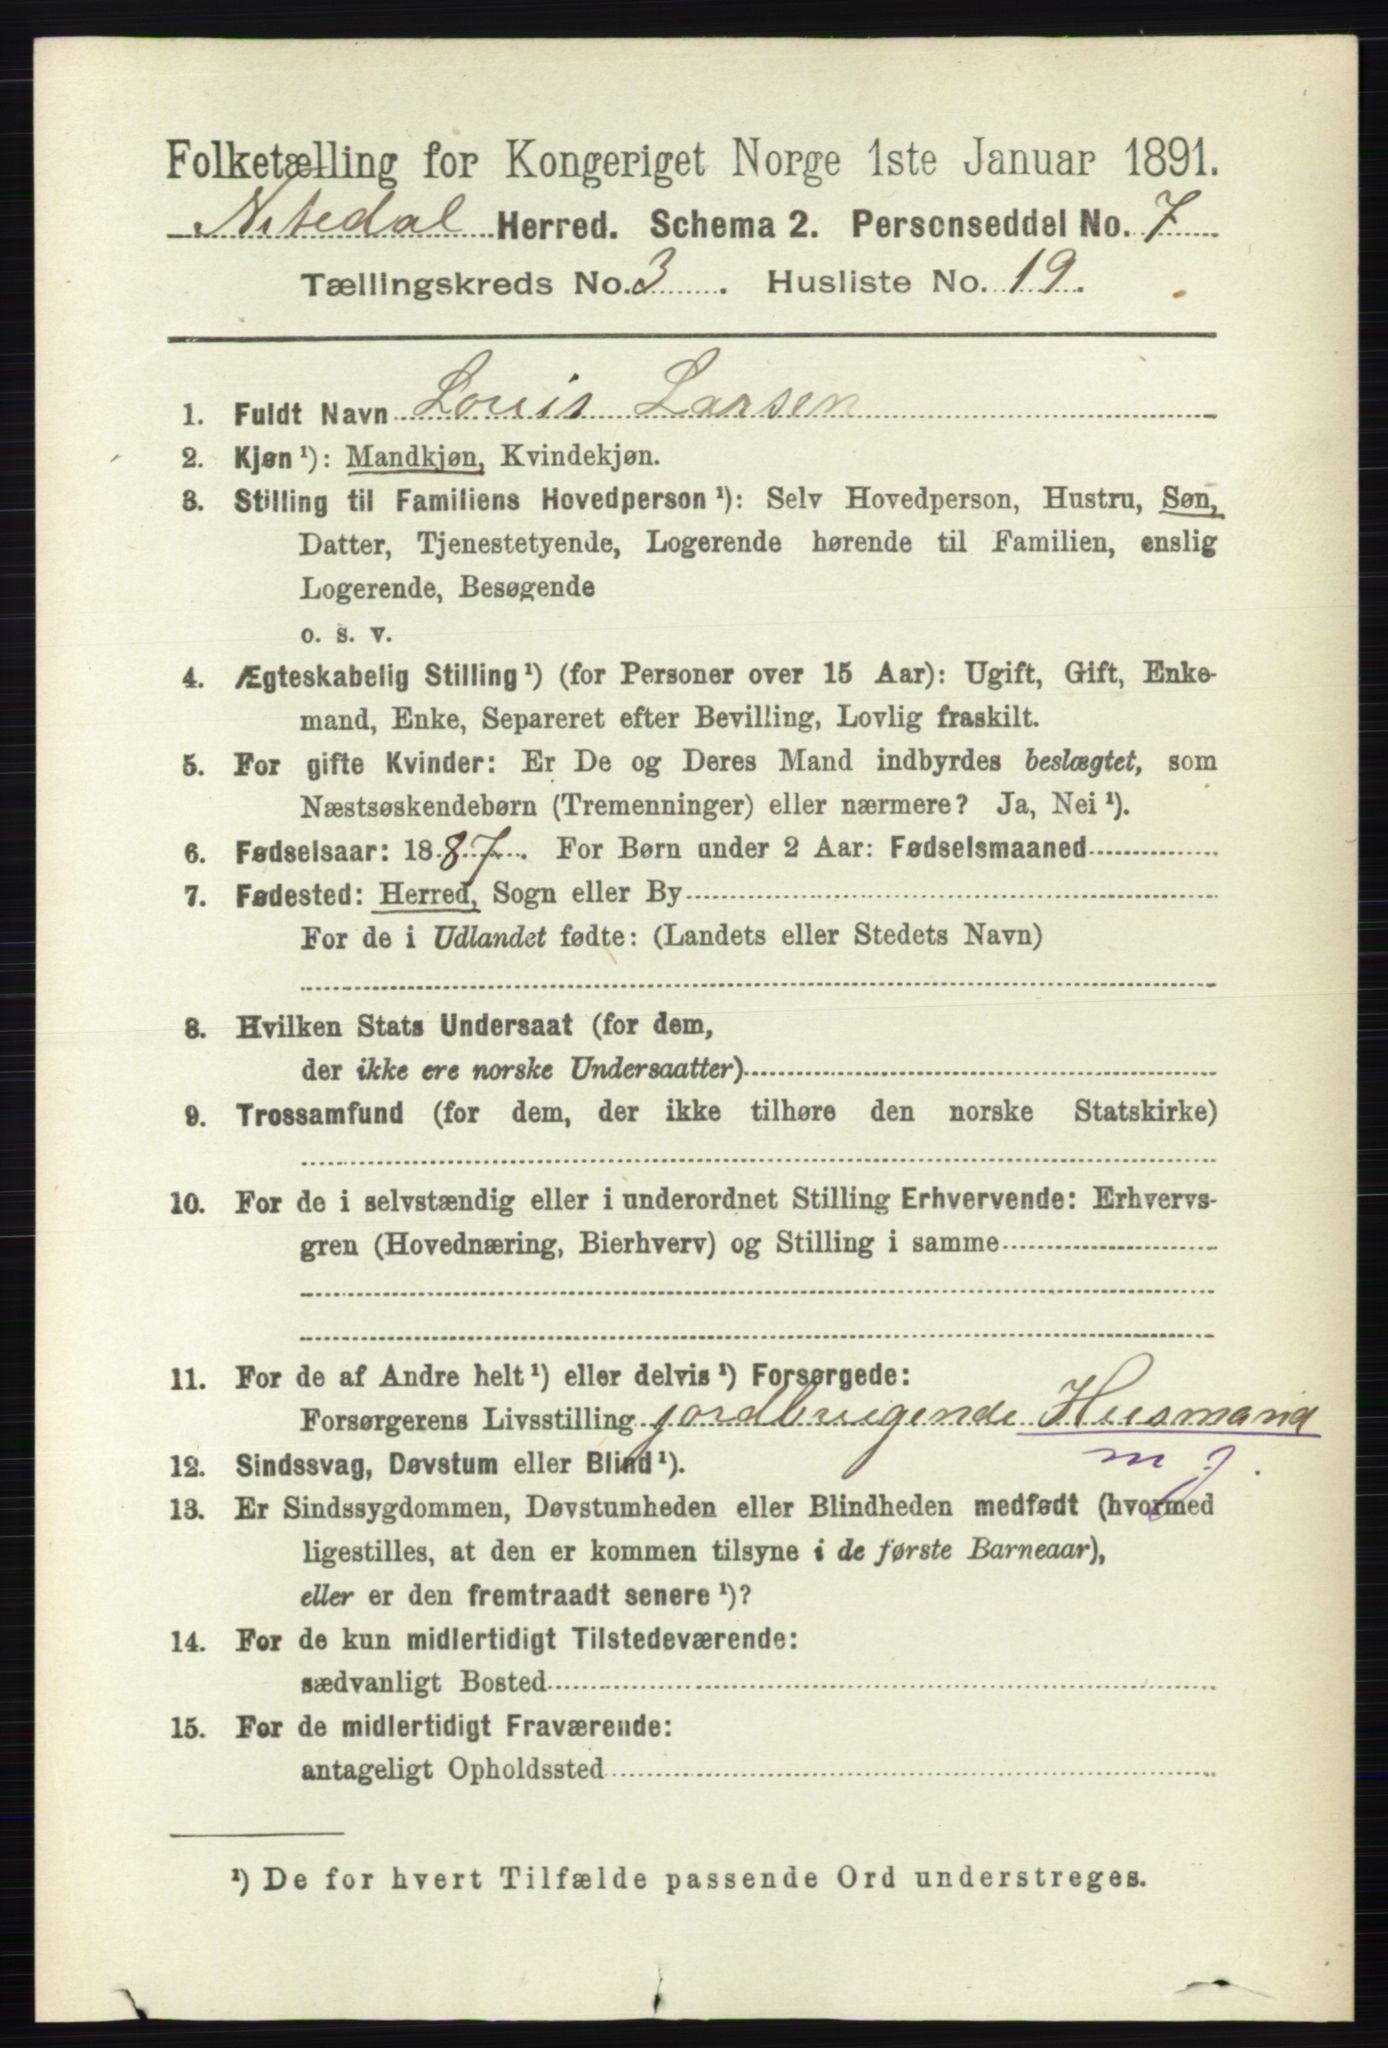 Folketælling for Kongeriget Norge 1ste Januar 1891.
Nitedal Herred. Schema 2. Personseddel No. 7
Tællingskreds No. 3. Husliste No. 19.
1. Fuldt Navn Louis Larsen
2. Kjøn ¹): Mandkjøn, Kvindekjøn.
3. Stilling til Familiens Hovedperson ¹): Selv Hovedperson, Hustru, Søn,
Datter, Tjenestetyende, Logerende hørende til Familien, enslig
Logerende, Besøgende
o. s. v.
4. Ægteskabelig Stilling ¹) (for Personer over 15 Aar): Ugift, Gift, Enke-
mand, Enke, Separeret efter Bevilling, Lovlig fraskilt.
5. For gifte Kvinder: Er De og Deres Mand indbyrdes beslægtet, som
Næstsøskendebørn (Tremenninger) eller nærmere? Ja, Nei ¹).
6. Fødselsaar: 1887. For Børn under 2 Aar: Fødselsmaaned
7. Fødested: Herred, Sogn eller By
For de i Udlandet fødte: (Landets eller Stedets Navn)
8. Hvilken Stats Undersaat (for dem,
der ikke ere norske Undersaatter)
9. Trossamfund (for dem, der ikke tilhøre den norske Statskirke)
10. For de i selvstændig eller i underordnet Stilling Erhvervende: Erhvervs-
gren (Hovednæring, Bierhverv) og Stilling i samme
11. For de af Andre helt ¹) eller delvis ¹) Forsørgede:
Forsørgerens Livsstilling jordbrugende Husmand
m j.
12. Sindssvag, Døvstum eller Blind ¹).
13. Er Sindssygdommen, Døvstumheden eller Blindheden medfødt (hvormed
ligestilles, at den er kommen tilsyne i de første Barneaar),
eller er den fremtraadt senere ¹)?
14. For de kun midlertidigt Tilstedeværende:
sædvanligt Bosted
15. For de midlertidigt Fraværende:
antageligt Opholdssted
¹) De for hvert Tilfælde passende Ord understreges.